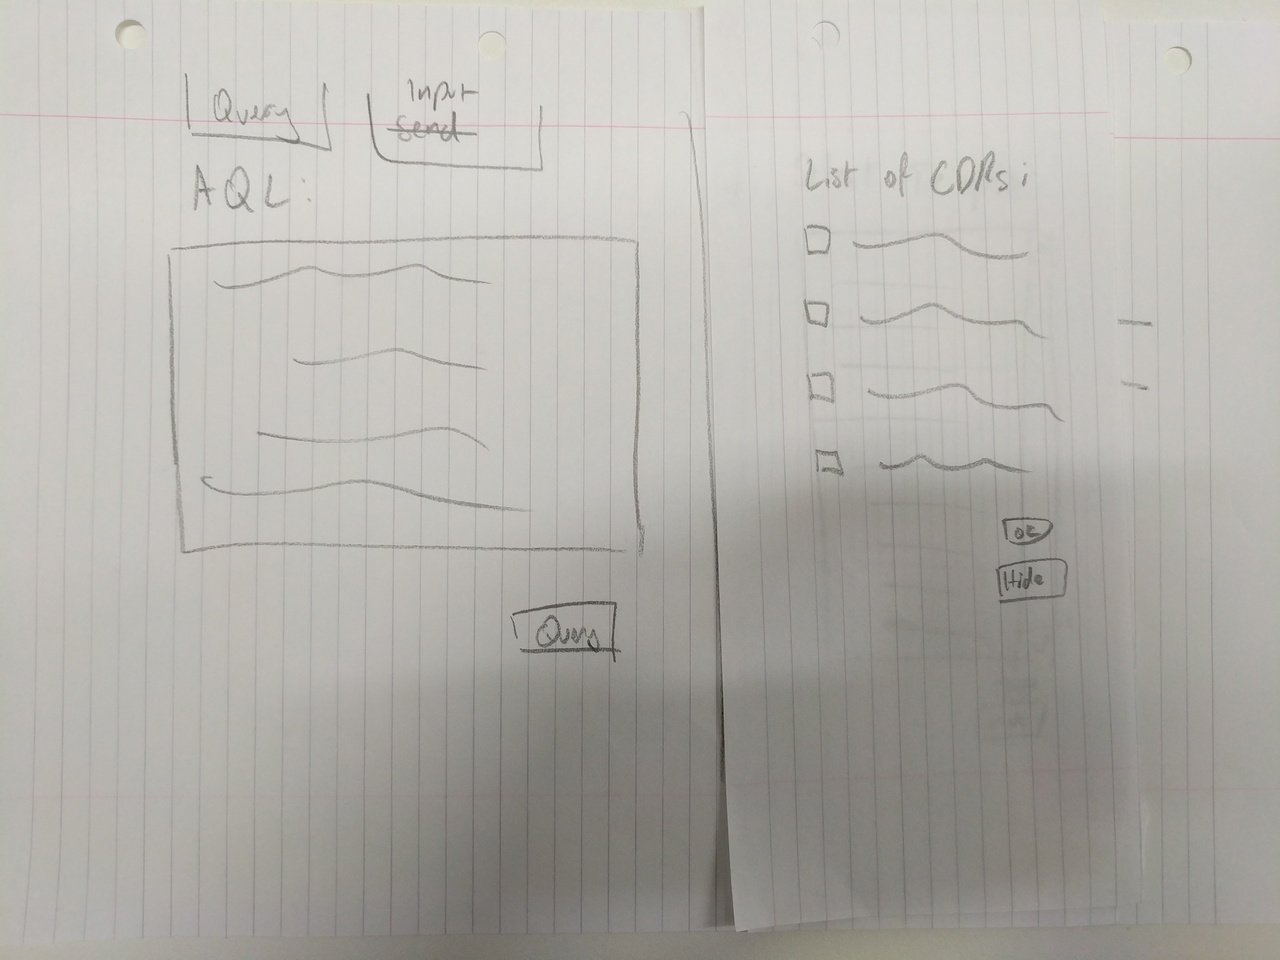 Query
Input
send
AQL:
Query
List of CDRs:
OK
Hide